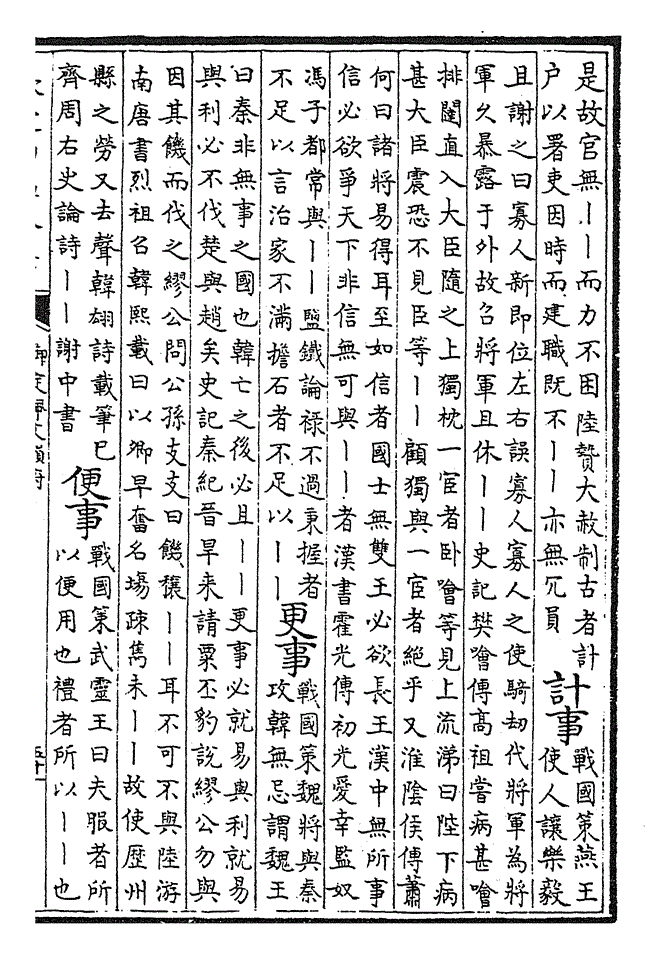 是故官無丨丨而力不困陸贄大赦制古者計
户以署吏因時而建職既不丨丨亦無冗員
計事
戰國策燕王
使人讓樂毅
且謝之曰寡人新即位左右誤寡人寡人之使騎劫代將軍為將
軍久暴露于外故召將軍且休丨丨史記樊噲傳高祖嘗病甚噲
排闥直入大臣隨之上獨枕一宦者卧噲等見上流涕曰陛下病
甚大臣震恐不見臣等丨丨顧獨與一宦者絶乎又淮陰侯傳蕭
何曰諸將易得耳至如信者國士無雙王必欲長王漢中無所事
信必欲爭天下非信無可與丨丨者漢書霍光傳初光愛幸監奴
馮子都常與丨丨鹽鐵論禄不過秉握者
不足以言治家不滿擔石者不足以丨丨
更事
戰國策魏將與秦
攻韓無忌謂魏王
曰秦非無事之國也韓亡之後必且丨丨更事必就易與利就易
與利必不伐楚與趙矣史記秦紀晉旱来請粟丕豹說繆公勿與
因其饑而伐之繆公問公孫支支曰饑穰丨丨耳不可不與陸游
南唐書烈祖召韓熙載曰以卿早奮名場疎雋未丨丨故使歴州
縣之勞又去聲韓翃詩載筆已
齊周右史論詩丨丨謝中書
便事
戰國策武靈王曰夫服者所
以便用也禮者所以丨丨也